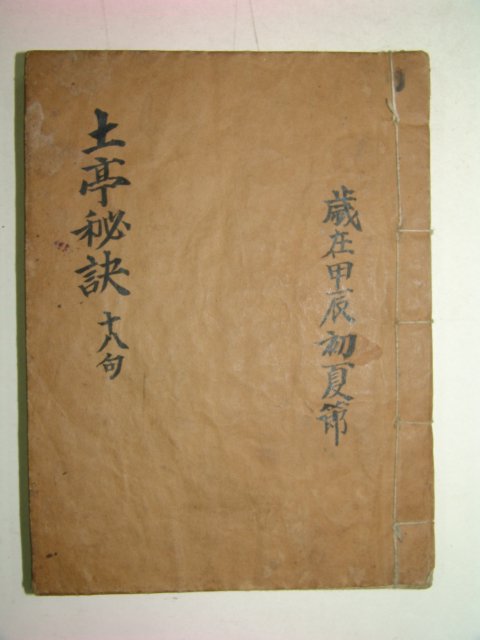 歲在甲辰初夏節
土亭秘訣 十八句